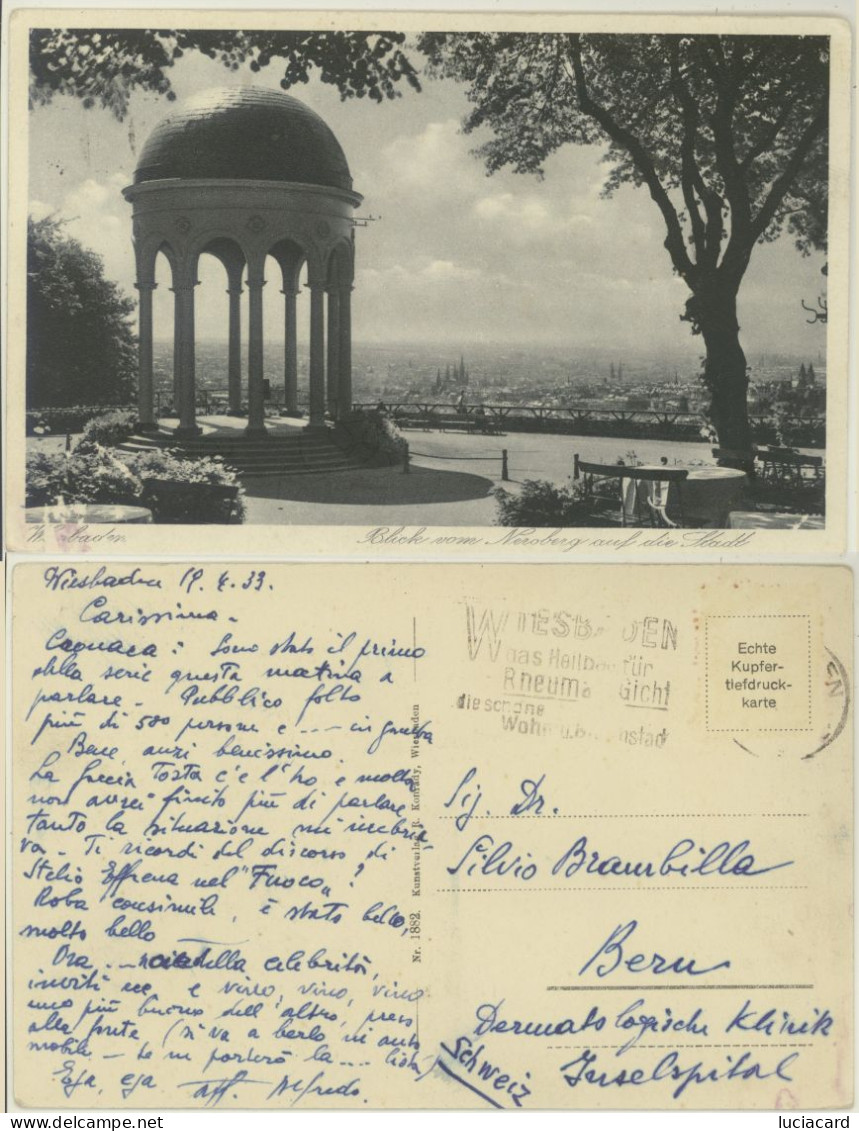 Wiesbaden
Blick vom Neroberg auf die Stadt
Wiesbaden 19.4.33.
Carissima -
Caguaca: Sono stato il primo
della serie questa mattina a
parlare - Pubblico folto
più di 500 persone e ---- in gamba
Bene, anzi benissimo.
La faccia tosta c'è l'ho e molto
non avrei finito più di parlare
tanto la situazione mi inebria
va - Ti ricordi del discorso di
Stelio Effrena nel "Fuoco"?
Roba consimile, è stato bello,
molto bello
Ora --- della celebrità,
inviti ecc. e vino, vino, vino
uno più buono dell'altro, preso
alla fonte (si va a berlo in auto
mobile - te ne porterò la .... lista)
Eja, eja aff. Alfredo.
Nr. 1882. Kunstverlag R. Konrady, Wiesbaden
WIESBADEN
das Heilbad für
Rheuma Gicht
die schöne
Wohn u. stadt
Echte
Kupfer-
tiefdruck-
karte
EN
Sig. Dr.
Silvio Brambilla
Bern
Dermatologische Klinik
Inselspital
Schweiz
luciacard